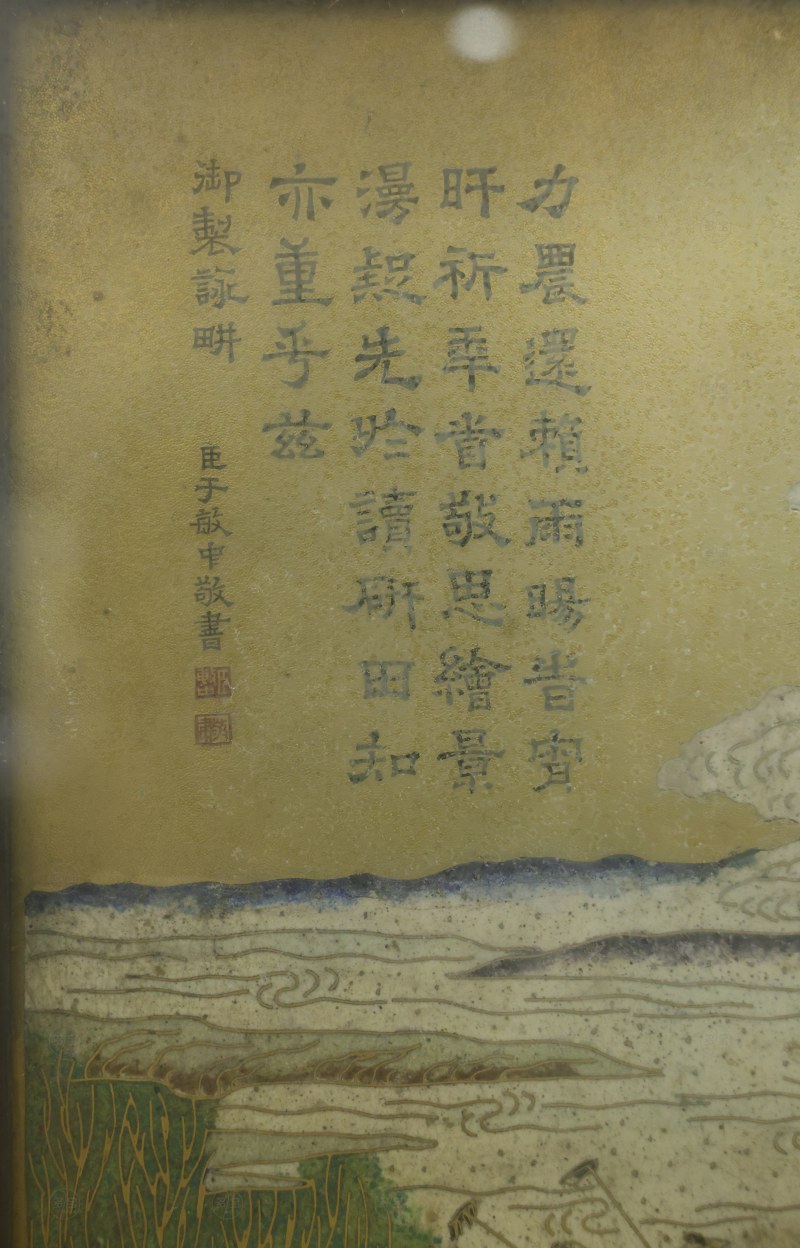 力農還賴雨暘旹宵
旰祈年敬思繪景
漫疑先於讀研田知
亦重乎茲
御製詠畊
臣于敏中敬書